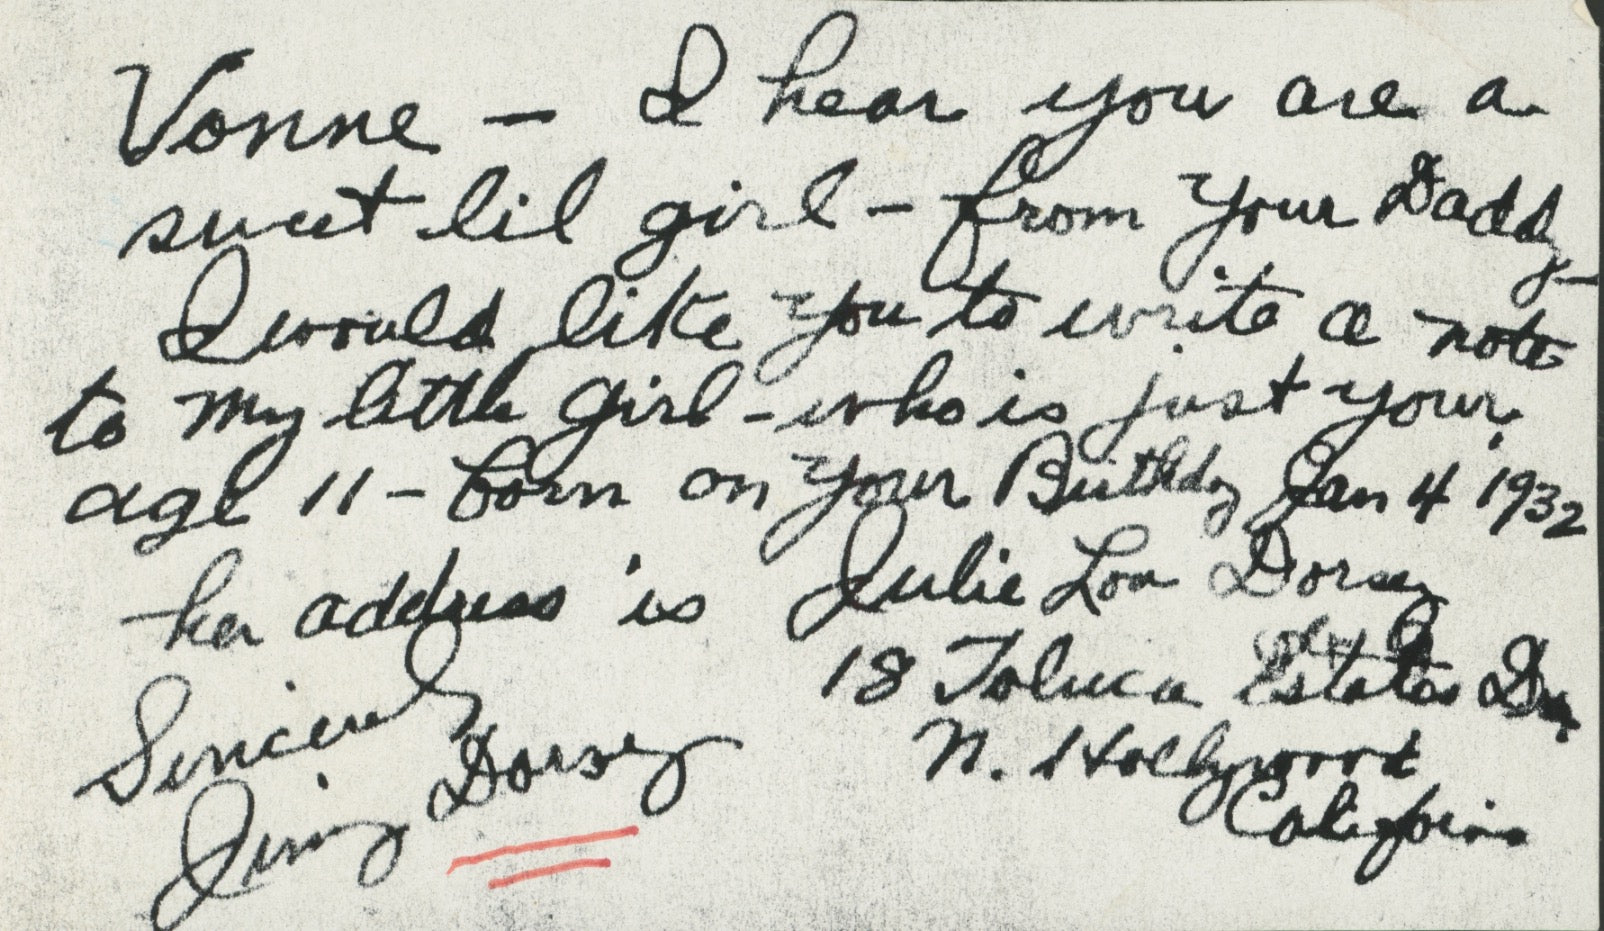 Vonne – I hear you are a
sweet lil girl – from your Daddy –
I would like you to write a note
to my little girl – who is just your
age 11 – born on your Birthday Jan 4 '1932
her address is Julie Lou Dorsey
18 Toluca Estates Dr.
N. Hollywood
California
Sincerely
Jimmy Dorsey